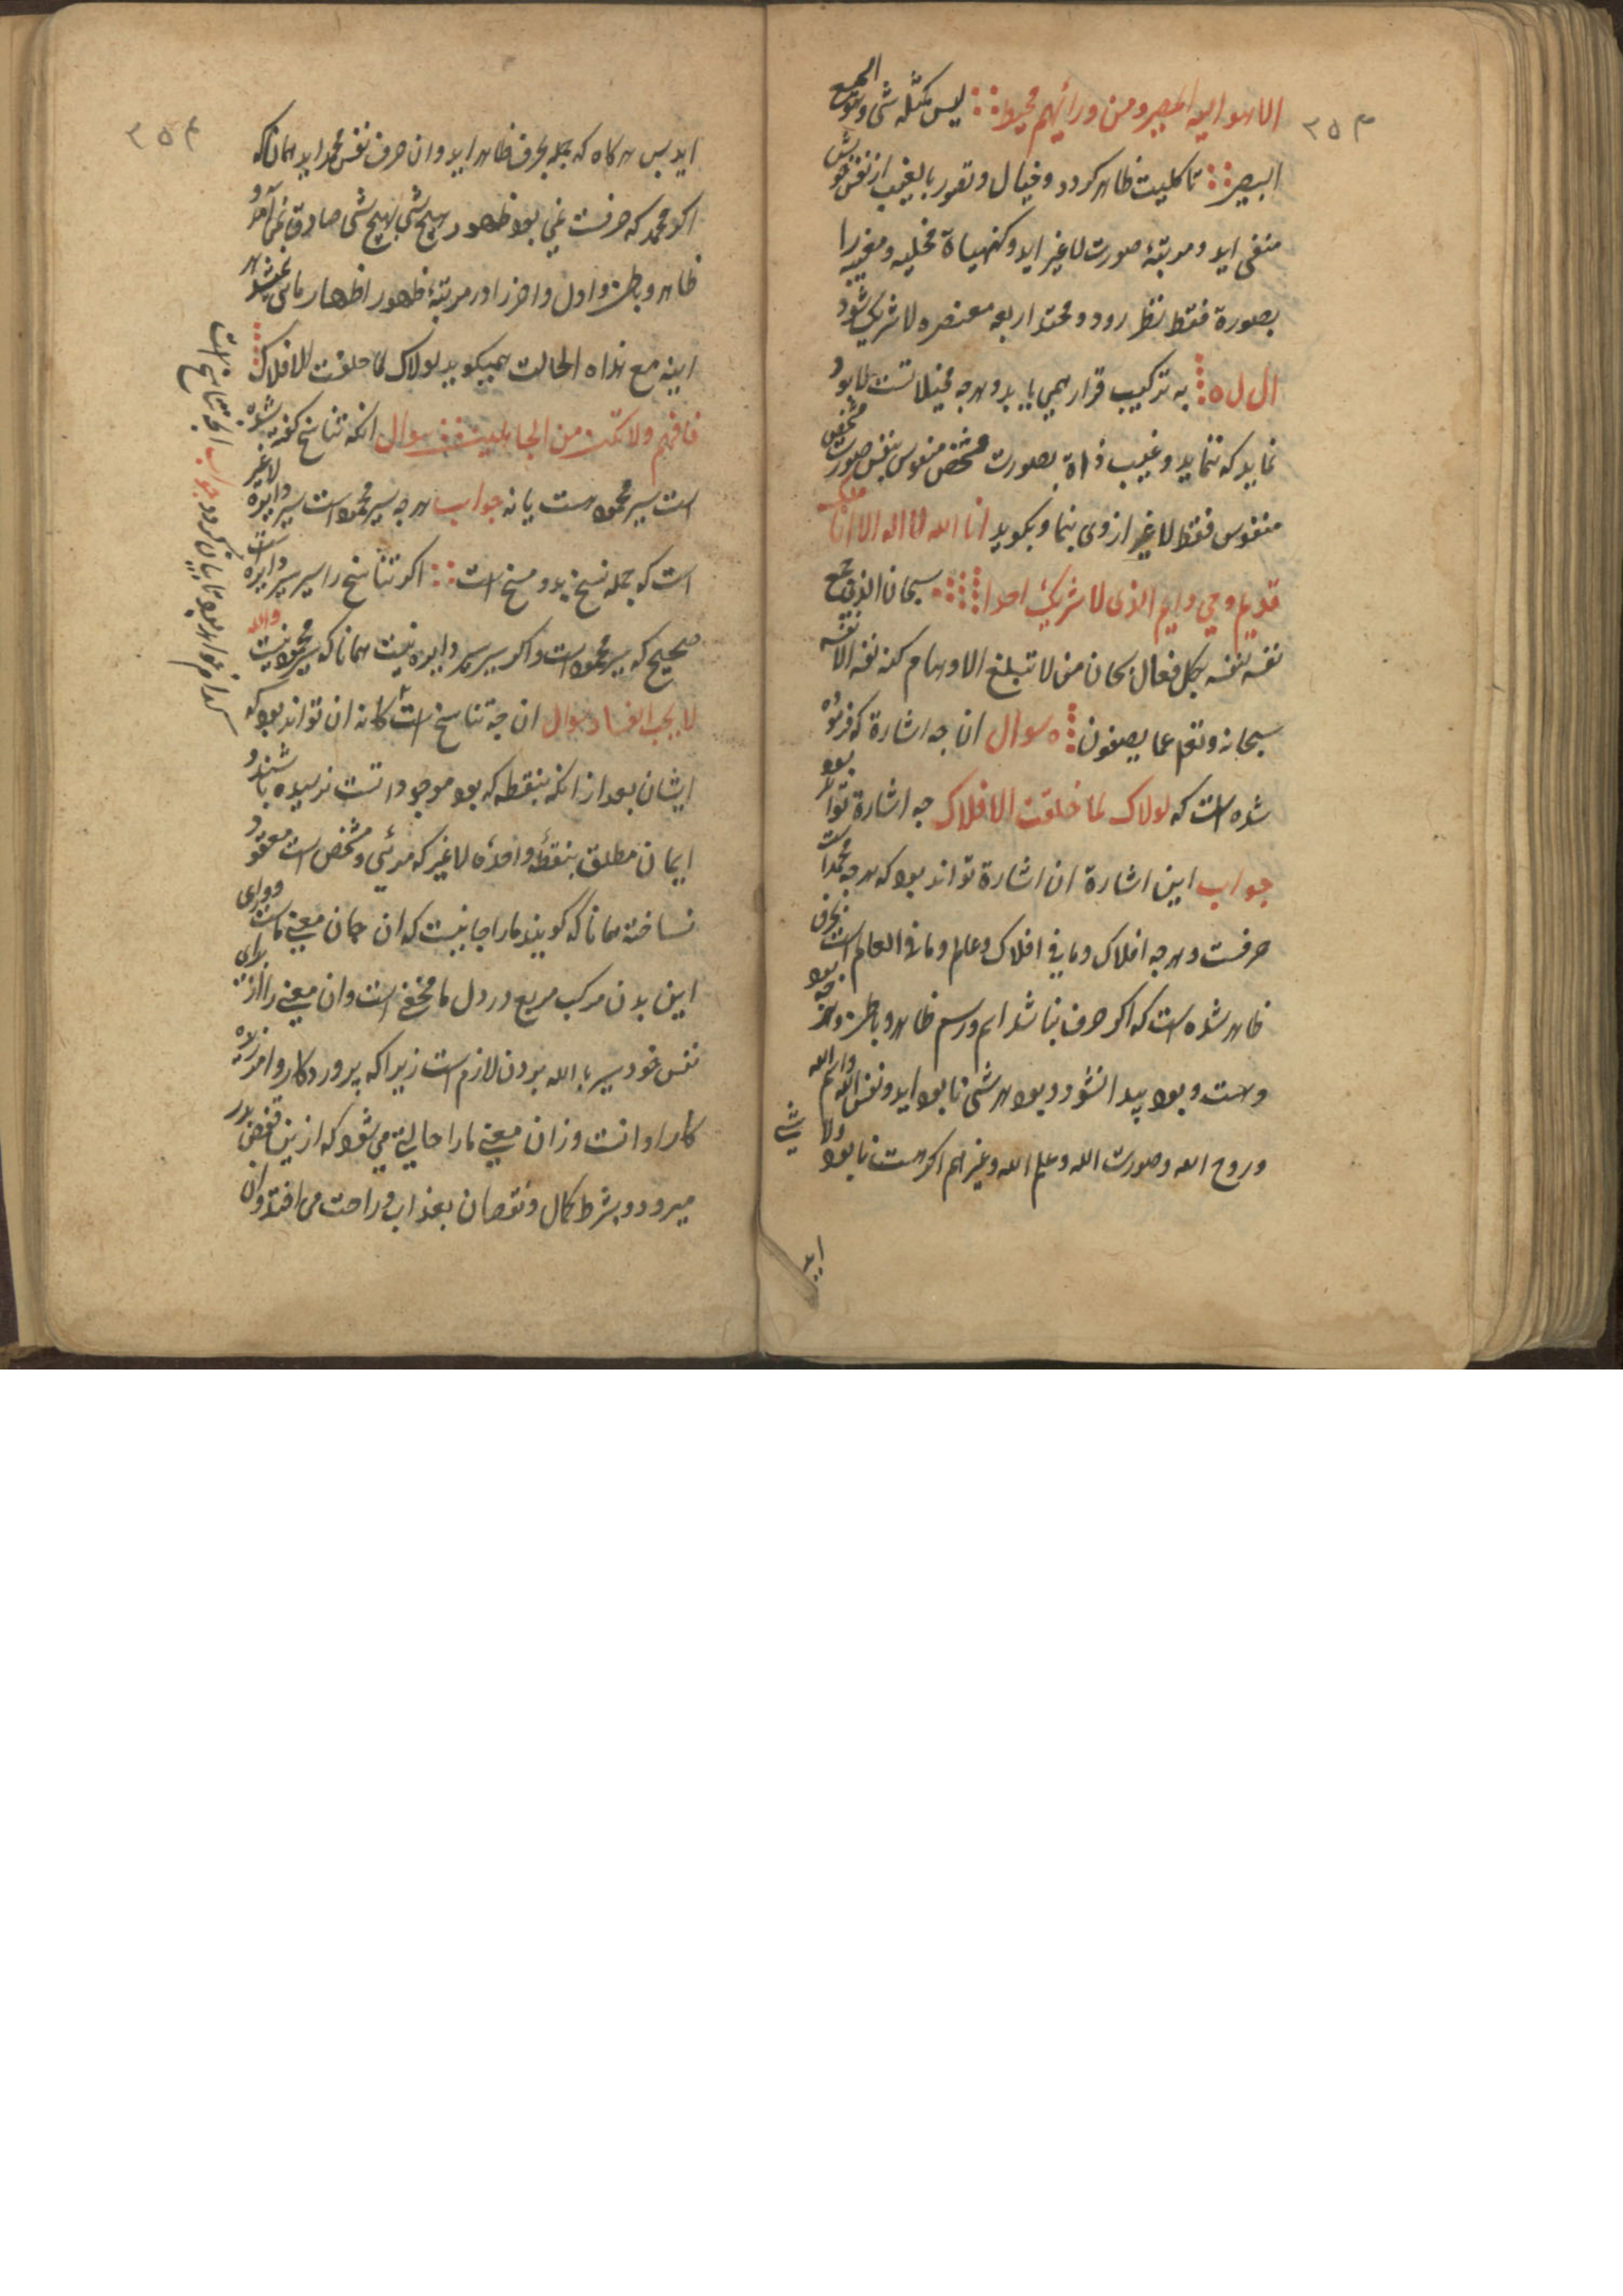 ۳۵۳
الا هو السمیع البصیر و من ورائهم محیط لیس کمثله شی و هو السمیع
البصیر تا کلیت ظاهر کردد و خیال و تصور بالغیب از نفس خویش
منفی اید و مرتبهٔ صورت لا غیر اید و کنهیاة مخلیه و مغیبه را
بصورة فقط نظر رود و محتد اربعه معنصره لا شریک شود
ال ل ه به ترکیب قرار همی یابد و هرجه مخیلاتست نابود
نماید که ننماید و غیب ذاة بصورت مشخص منفوس بنفس صورت مشخص
منفوس فقط لا غیر از وی بنما و بکوید انا الله لا اله الا انا ملک
قدیم و حی دایم الذی لا شریک احدا سبحان الذی جمع
نفسه لنفسه بکل فعال بکان من لا تبلغ الاوهام کنه نفسه الا نفسه
سبحانه و تعم عما یصفون سوال ان جه اشارة که فرموده
شده است که لولاک لما خلقت الافلاک جه اشارة تواند بود
جواب این اشارة ان اشارة تواند بود که هرجه محمد است
حرفست و هرجه افلاک و ما فی افلاک و علم و ما فی العالم است بحرف
ظاهر شده است که اکر حرف نباشد اسم و رسم ظاهر و باطن و هرجه بود
و هست و بود پیدا نشود و بود هر شی نابود اید و نفس الله و اسم الله
و روح الله و صورت الله و علم الله و غیرهم اکر هست نابود و لا شی
اید
۳۵۴
اید بس هرکاه که جمله بحرف ظاهر اید و ان حرف نفس محمد اید همانا که
اکر محمد که حرفست نمی بود ظهور هیچ شی بهیچ شی صادق نمی آمد و
ظاهر و باطن و اول و اخر را در مرتبهٔ ظهور اظهار یابی نمیشد هر
اینه مع هذاه الحالت همیکوید لولاک لما خلقت الافلاک
فافهم و لا تکن من الجاهلین سوال انکه تناسخ کفته شده
است سیر محمود هست یا نه جواب هرجه سیر محمود است سیر دایره لا غیر
است که جمله نسخ بد و مسخ است اکر تناسخ را سیر سیر دایره است
صحیح که سیر محمود است و اکر سیر سیر دایره نیست همانا که سیر محمود نیست والله
لا یحب الفساد سوال ان جه تناسخ است کانه ان تواند بود که
ایشان بعد از انکه بنقطه که بود موجوداتست نرسیده باشند و
ایمان مطلق بنقطهٔ واحدهٔ لا غیر که مرئی و مشخص است معقود
نساخته همانا که کویند ما را جانیست که ان جان معنی ماست و ورای
این بدن مرکب مربع در دل ما مخفی است و ان معنی را از برای
نفس خود سیر با الله بردن لازم است زیرا که پروردکار و امرزنده
کار اوانست و زان معنی ما را حالیة می شود که از ین قفص بدر
میرود و بشرط کمال و نقصان بعذاب و راحت می افتد و ان